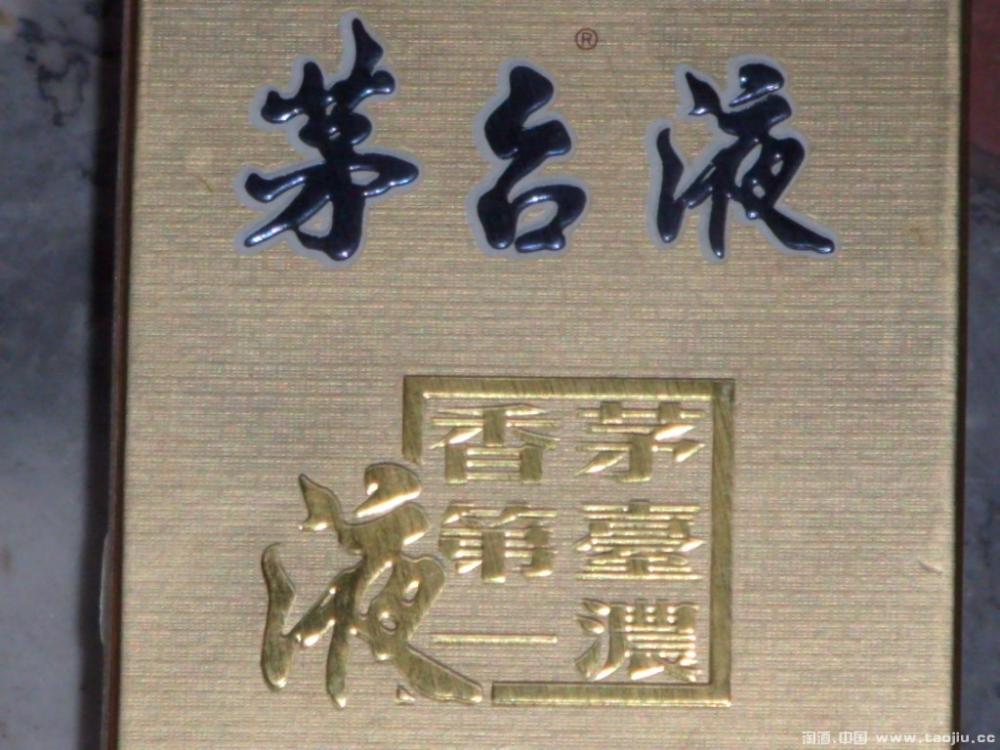 ®
茅台液
茅臺濃
香第一
液
淘酒.中国 www.taojiu.cc